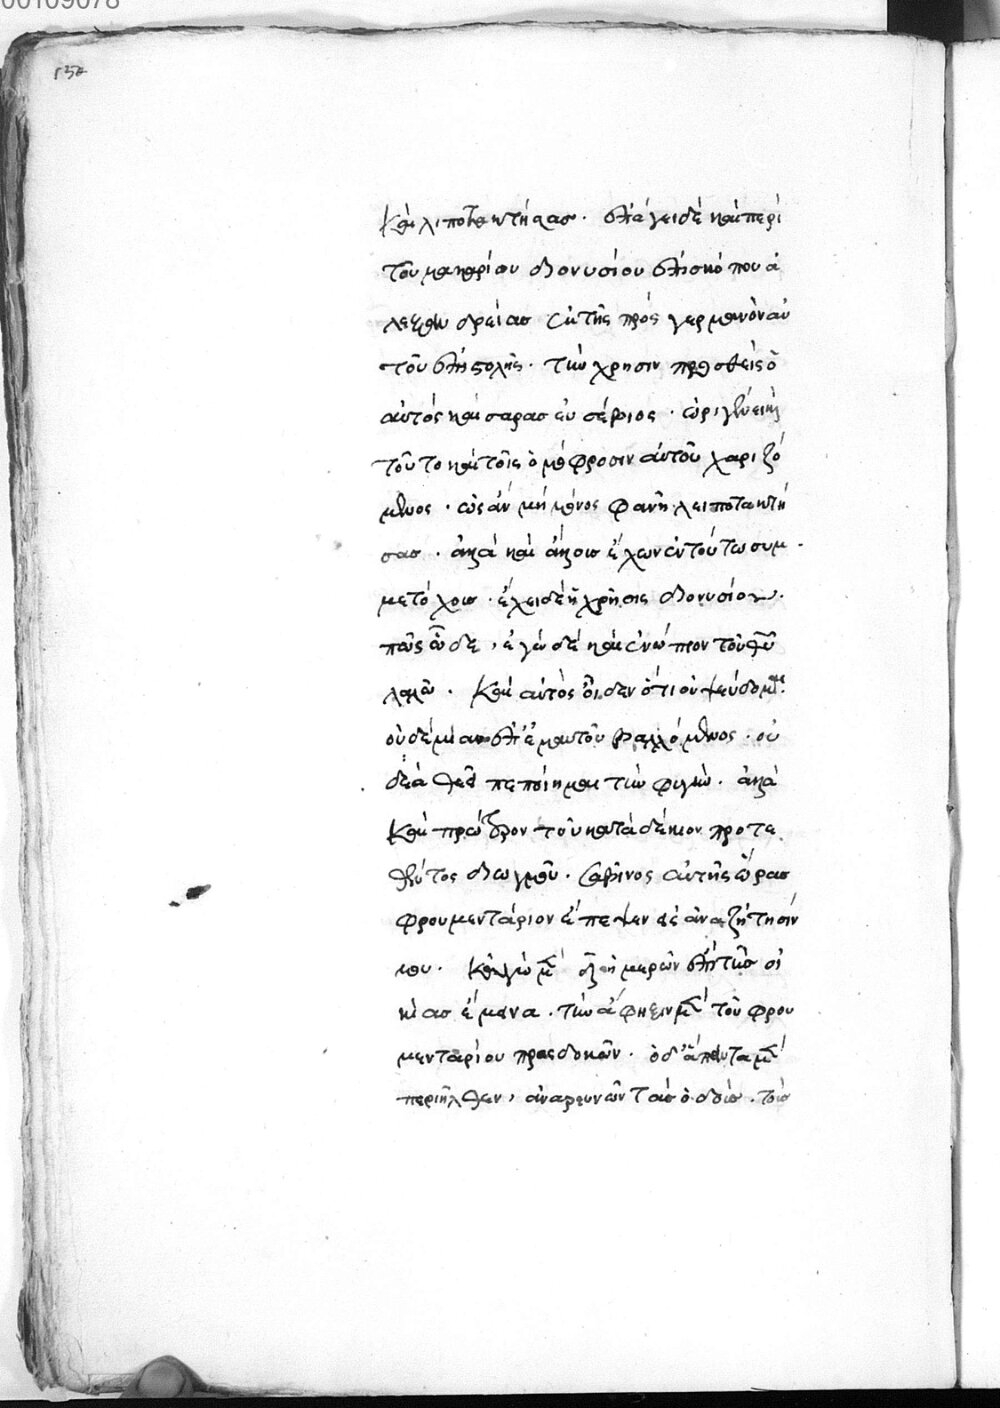 00109078
καὶ λιποτακτήσας · ἐπάγει δὲ καὶ περὶ
τοῦ μακαρίου διονυσίου ἐπισκόπου ἀ
λεξανδρείας ἐκ τῆς πρὸς γερμανὸν αὐ
τοῦ ἐπιστολῆς · τὴν χρῆσιν παραθεὶς ὁ
αὐτὸς καισαρέας εὐσέβιος · ὠριγένει κἂν
τούτῳ καὶ τοῖς ὁμόφροσιν αὐτοῦ χαριζό
μενος · ὡς ἂν μὴ μόνος φανῇ λειποτακτή
σας · ἀλλὰ καὶ ἄλλους ἔχων ἐν τούτω συμ
μετόχους · ἔχει δὲ ἡ χρῆσις διονυσίου
πῶς ὧδε, ἐγὼ δὲ καὶ ἐνώπιον τοῦ θεοῦ
λαλῶ · καὶ αὐτὸς οἶδεν ὅτι οὐ ψεύδομαι ·
οὐδεμίαν ἐπ' ἐμαυτοῦ βαλλόμενος · οὐ
δὲ ἀθεεὶ πεποίημαι τὴν φυγήν · ἀλλὰ
καὶ πρότερον τοῦ κατὰ δέκιον προτε
θέντος διωγμοῦ · σαβῖνος αὐτῆς ὥρας
φρουμεντάριον ἔπεμψεν εἰς ἀναζήτησίν
μου · κἀγὼ μὲν τεσσάρων ἡμερῶν ἐπὶ τῆς οἰ
κίας ἔμεινα · τὴν ἄφηξιν μὲν τοῦ φρου
μενταρίου προσδοκῶν · ὁ δ' ἅπαντα μὲν
περιῆλθεν, ἀνερευνῶν τὰς ὁδούς · τοὺς